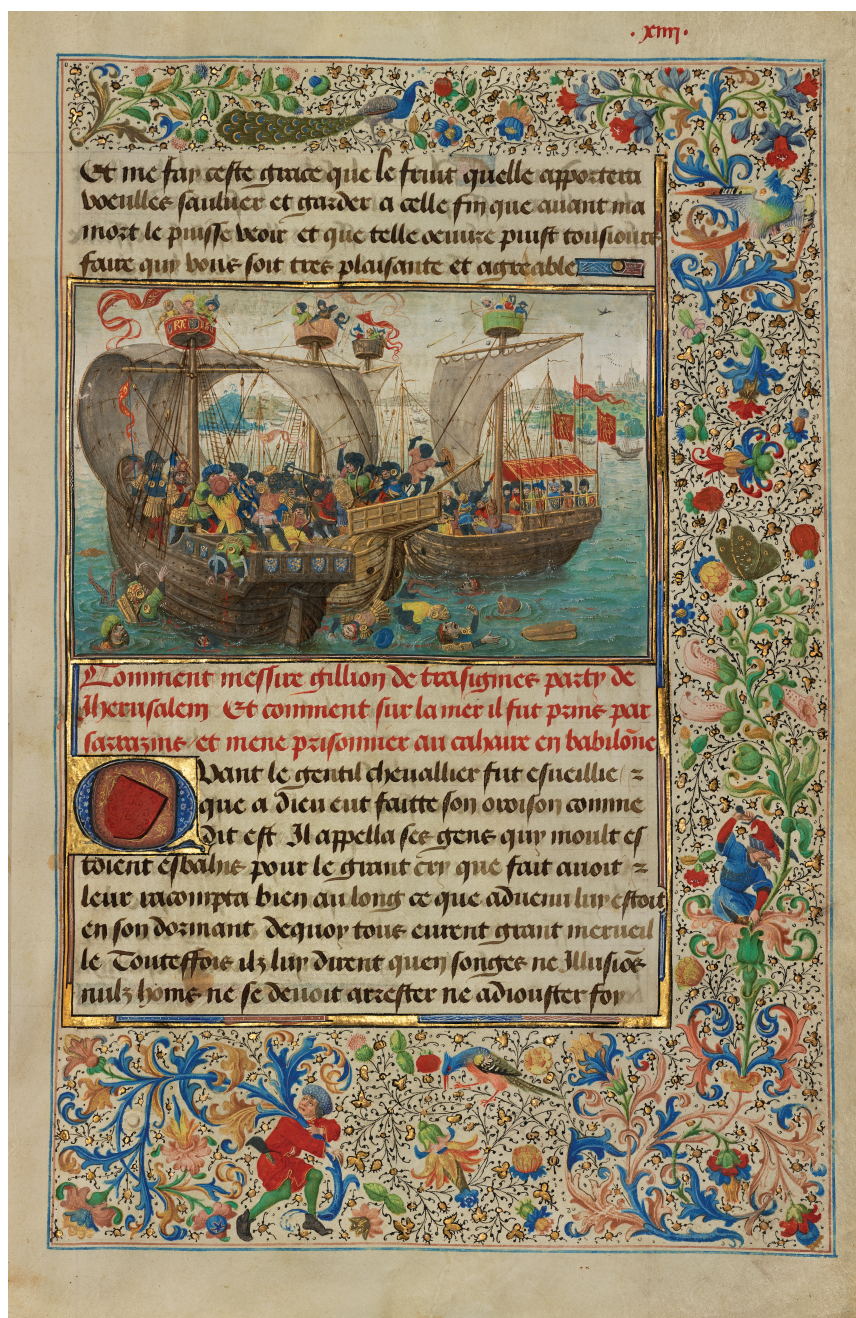 .xiiii.
Et me fay ceste grace que le fruit quelle apportera
voeulles saulver et garder a celle fin que avant ma
mort le puisse veoir et que telle oeuvre puist tousiours
faire quy vous soit tres plaisante et agreable
Comment messire gillion de trasignies party de
Iherusalem Et comment sur la mer il fut prins par
sarrazins et mene prisonnier au cahaire en babilõne
Quant le gentil chevallier fut esveillie z
que a Dieu eut faitte son oroison comme
Dit est Il appella ses gens quy moult es
toient esbahis pour le grant cry que fait avoit z
leur racompta bien au long ce que advenu luy estoit
en son dormant dequoy tous eurent grant merveil
le Touteffois ilz luy dirent quen songes ne Illusiõs
nulz homs ne se devoit arrester ne adiouster foy